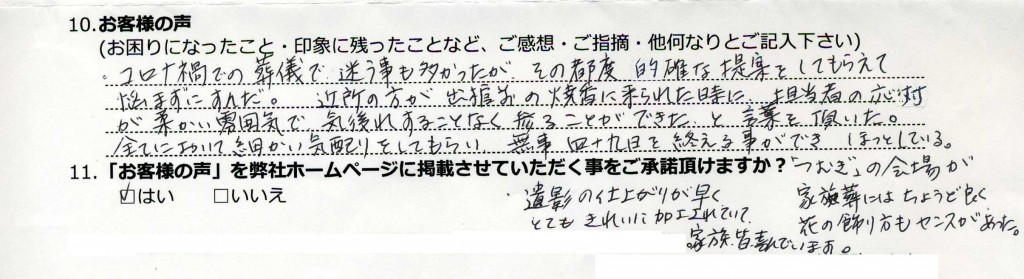 10.お客様の声
(お困りになったこと・印象に残ったことなど、ご感想・ご指摘・他何なりとご記入下さい)
・コロナ禍での葬儀で迷う事も多かったが、その都度 的確な提案をしてもらえて
悩まずにすんだ。 近所の方が 出棺前の焼香に来られた時に、担当者の応対
が柔かい雰囲気で 気後れすることなく 参ることができた と言葉を頂いた。
全てにおいて細かい気配りをしてもらい、無事四十九日を終える事ができ ほっとしている。
11.「お客様の声」を弊社ホームページに掲載させていただく事をご承諾頂けますか？
☑はい □いいえ
・遺影の仕上がりが早く
とてもきれいに加工されていて、
家族皆喜んでいます。
・「つむぎ」の会場が
家族葬にはちょうど良く
花の飾り方もセンスがあった。